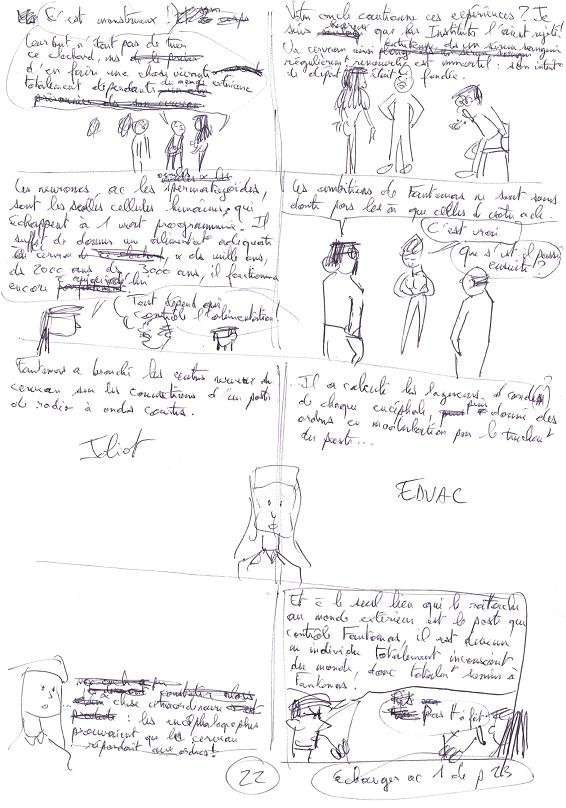 C'est monstrueux !
Leur but n'était pas de tuer
ce clochard, mais
d'en faire une chose vivante
totalement dépendante du monde extérieure
Votre oncle cautionne ces expériences ? Je
suis que sur l'Institut l'aient rejeté !
Un cerveau ainsi
régulièrement renouvelé est immortel : son intuit°
de départ était fondée.
Les neurones, ac les spermatozoïdes,
sont les seules cellules humaines qui
échappent à 1 mort programmée. Il
suffit de donner un alimentat° adéquate
cerveau & de mille ans,
de 2000 ans, de 3000 ans, il fonctionnera
encore
Tout dépend qui
contrôle l'alimentation !
Les ambitions de Fantomas ne sont sans
doute pas les m que celles de
C'est vrai
Que s'est-il passé
ensuite ?
Fantomas a branché les centres nerveux du
cerveau sur les connections d'un poste
de radio à ondes courtes.
Idiot
Il a calculé les longueurs d'onde (?)
de chaque encéphale, puis donné des
ordres en modulation par le truchement
du poste...
EDVAC
chose extraordinaire
: les encéphalographes
prouvaient que le cerveau
répondait aux ordres !
Et si le seul lien qui le rattache
au monde extérieur est le poste que
contrôle Fantomas, il est devenu
un individu totalement inconscient
du monde, donc totalent soumis à
Fantomas !
pas tt à fait
22
Echanger ac 1 de p 23